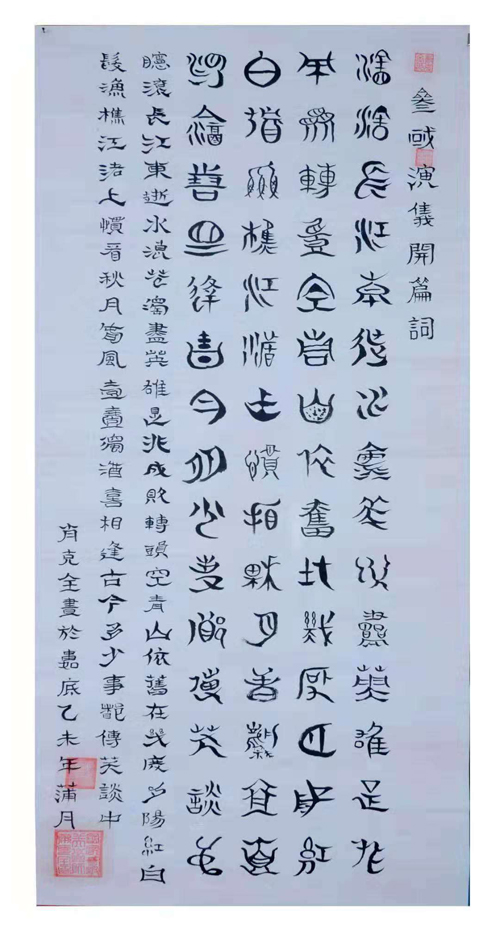 叄國演儀開篇詞
滾滾長江東逝水浪花淘盡英雄是非
成敗轉頭空青山依舊在幾度夕陽紅
白髮漁樵江渚上慣看秋月春風壹壺
濁酒喜相逢古今多少事都付笑談中
滾長江東逝水浪花濁盡英雄是非成敗轉頭空青山依舊在幾度夕陽紅白
髮漁樵江渚上慣看秋月萅風壹壺濁酒喜相逢古今多少事都傳笑談中
肖克全書於嘉底乙未年蒲月